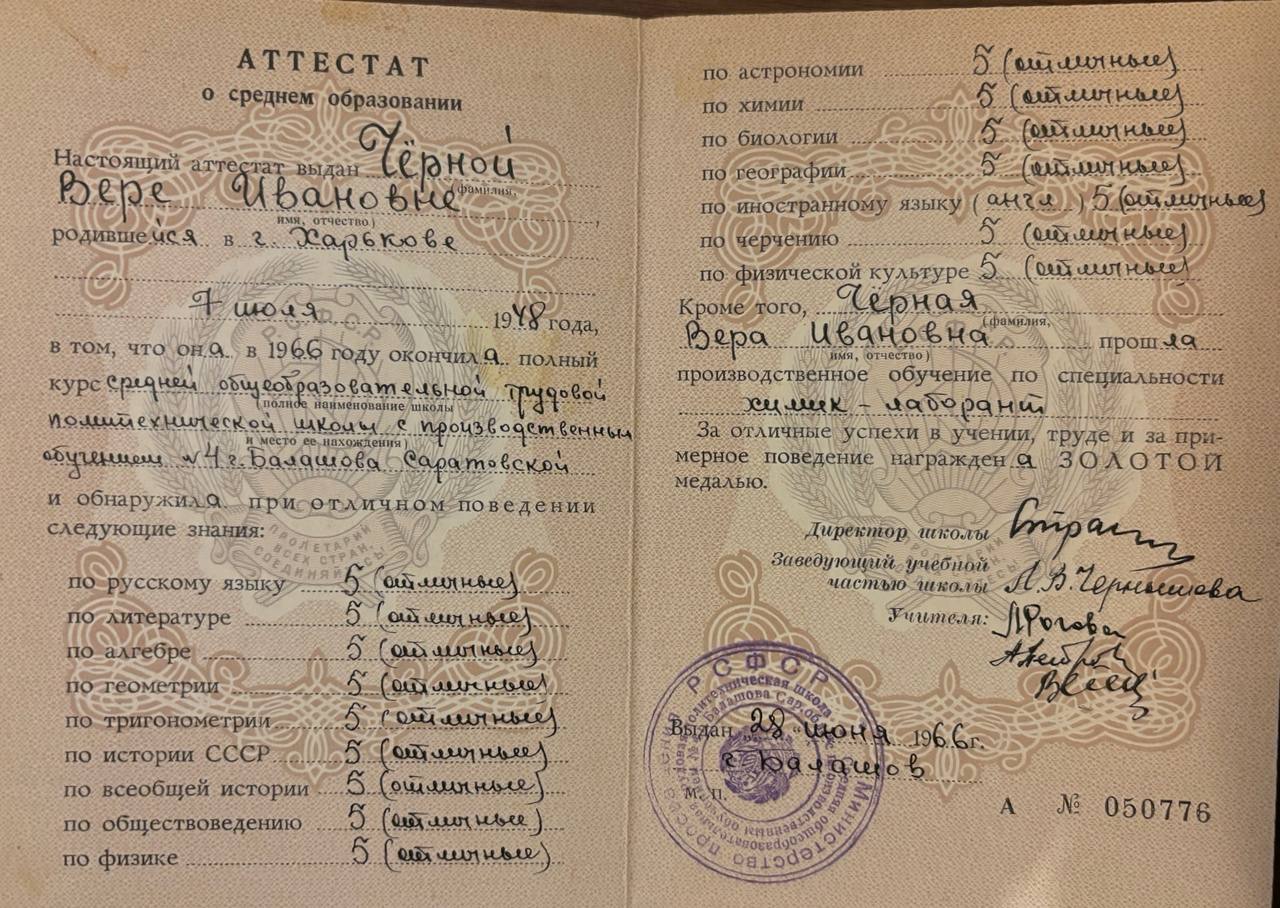 АТТЕСТАТ
о среднем образовании
Настоящий аттестат выдан Чёрной
(фамилия,
Вере Ивановне
имя, отчество)
родившейся в г. Харькове
7 июля 1948 года,
в том, что она в 1966 году окончила полный
курс средней общеобразовательной трудовой
(полное наименование школы
политехнической школы с производственным
и место ее нахождения)
обучением №4 г. Балашова Саратовской
и обнаружила при отличном поведении
следующие знания:
ПРОЛЕТАРИИ
ВСЕХ СТРАН,
СОЕДИНЯЙТЕСЬ!
по русскому языку 5 (отличные)
по литературе 5 (отличные)
по алгебре 5 (отличные)
по геометрии 5 (отличные)
по тригонометрии 5 (отличные)
по истории СССР 5 (отличные)
по всеобщей истории 5 (отличные)
по обществоведению 5 (отличные)
по физике 5 (отличные)
по астрономии 5 (отличные)
по химии 5 (отличные)
по биологии 5 (отличные)
по географии 5 (отличные)
по иностранному языку (англ) 5 (отличные)
по черчению 5 (отличные)
по физической культуре 5 (отличные)
Кроме того, Чёрная
(фамилия,
Вера Ивановна прошла
имя, отчество)
производственное обучение по специальности
химик-лаборант
За отличные успехи в учении, труде и за при-
мерное поведение награждена ЗОЛОТОЙ
медалью.
Директор школы
Заведующий учебной
частью школы Л.В.Чернышова
Учителя: Рогова
РСФСР
Министерство просвещения
политехническая школа
Балашова Сар. об.
Выдан „28" июня 1966 г.
г. Балашов
М. П.
А № 050776